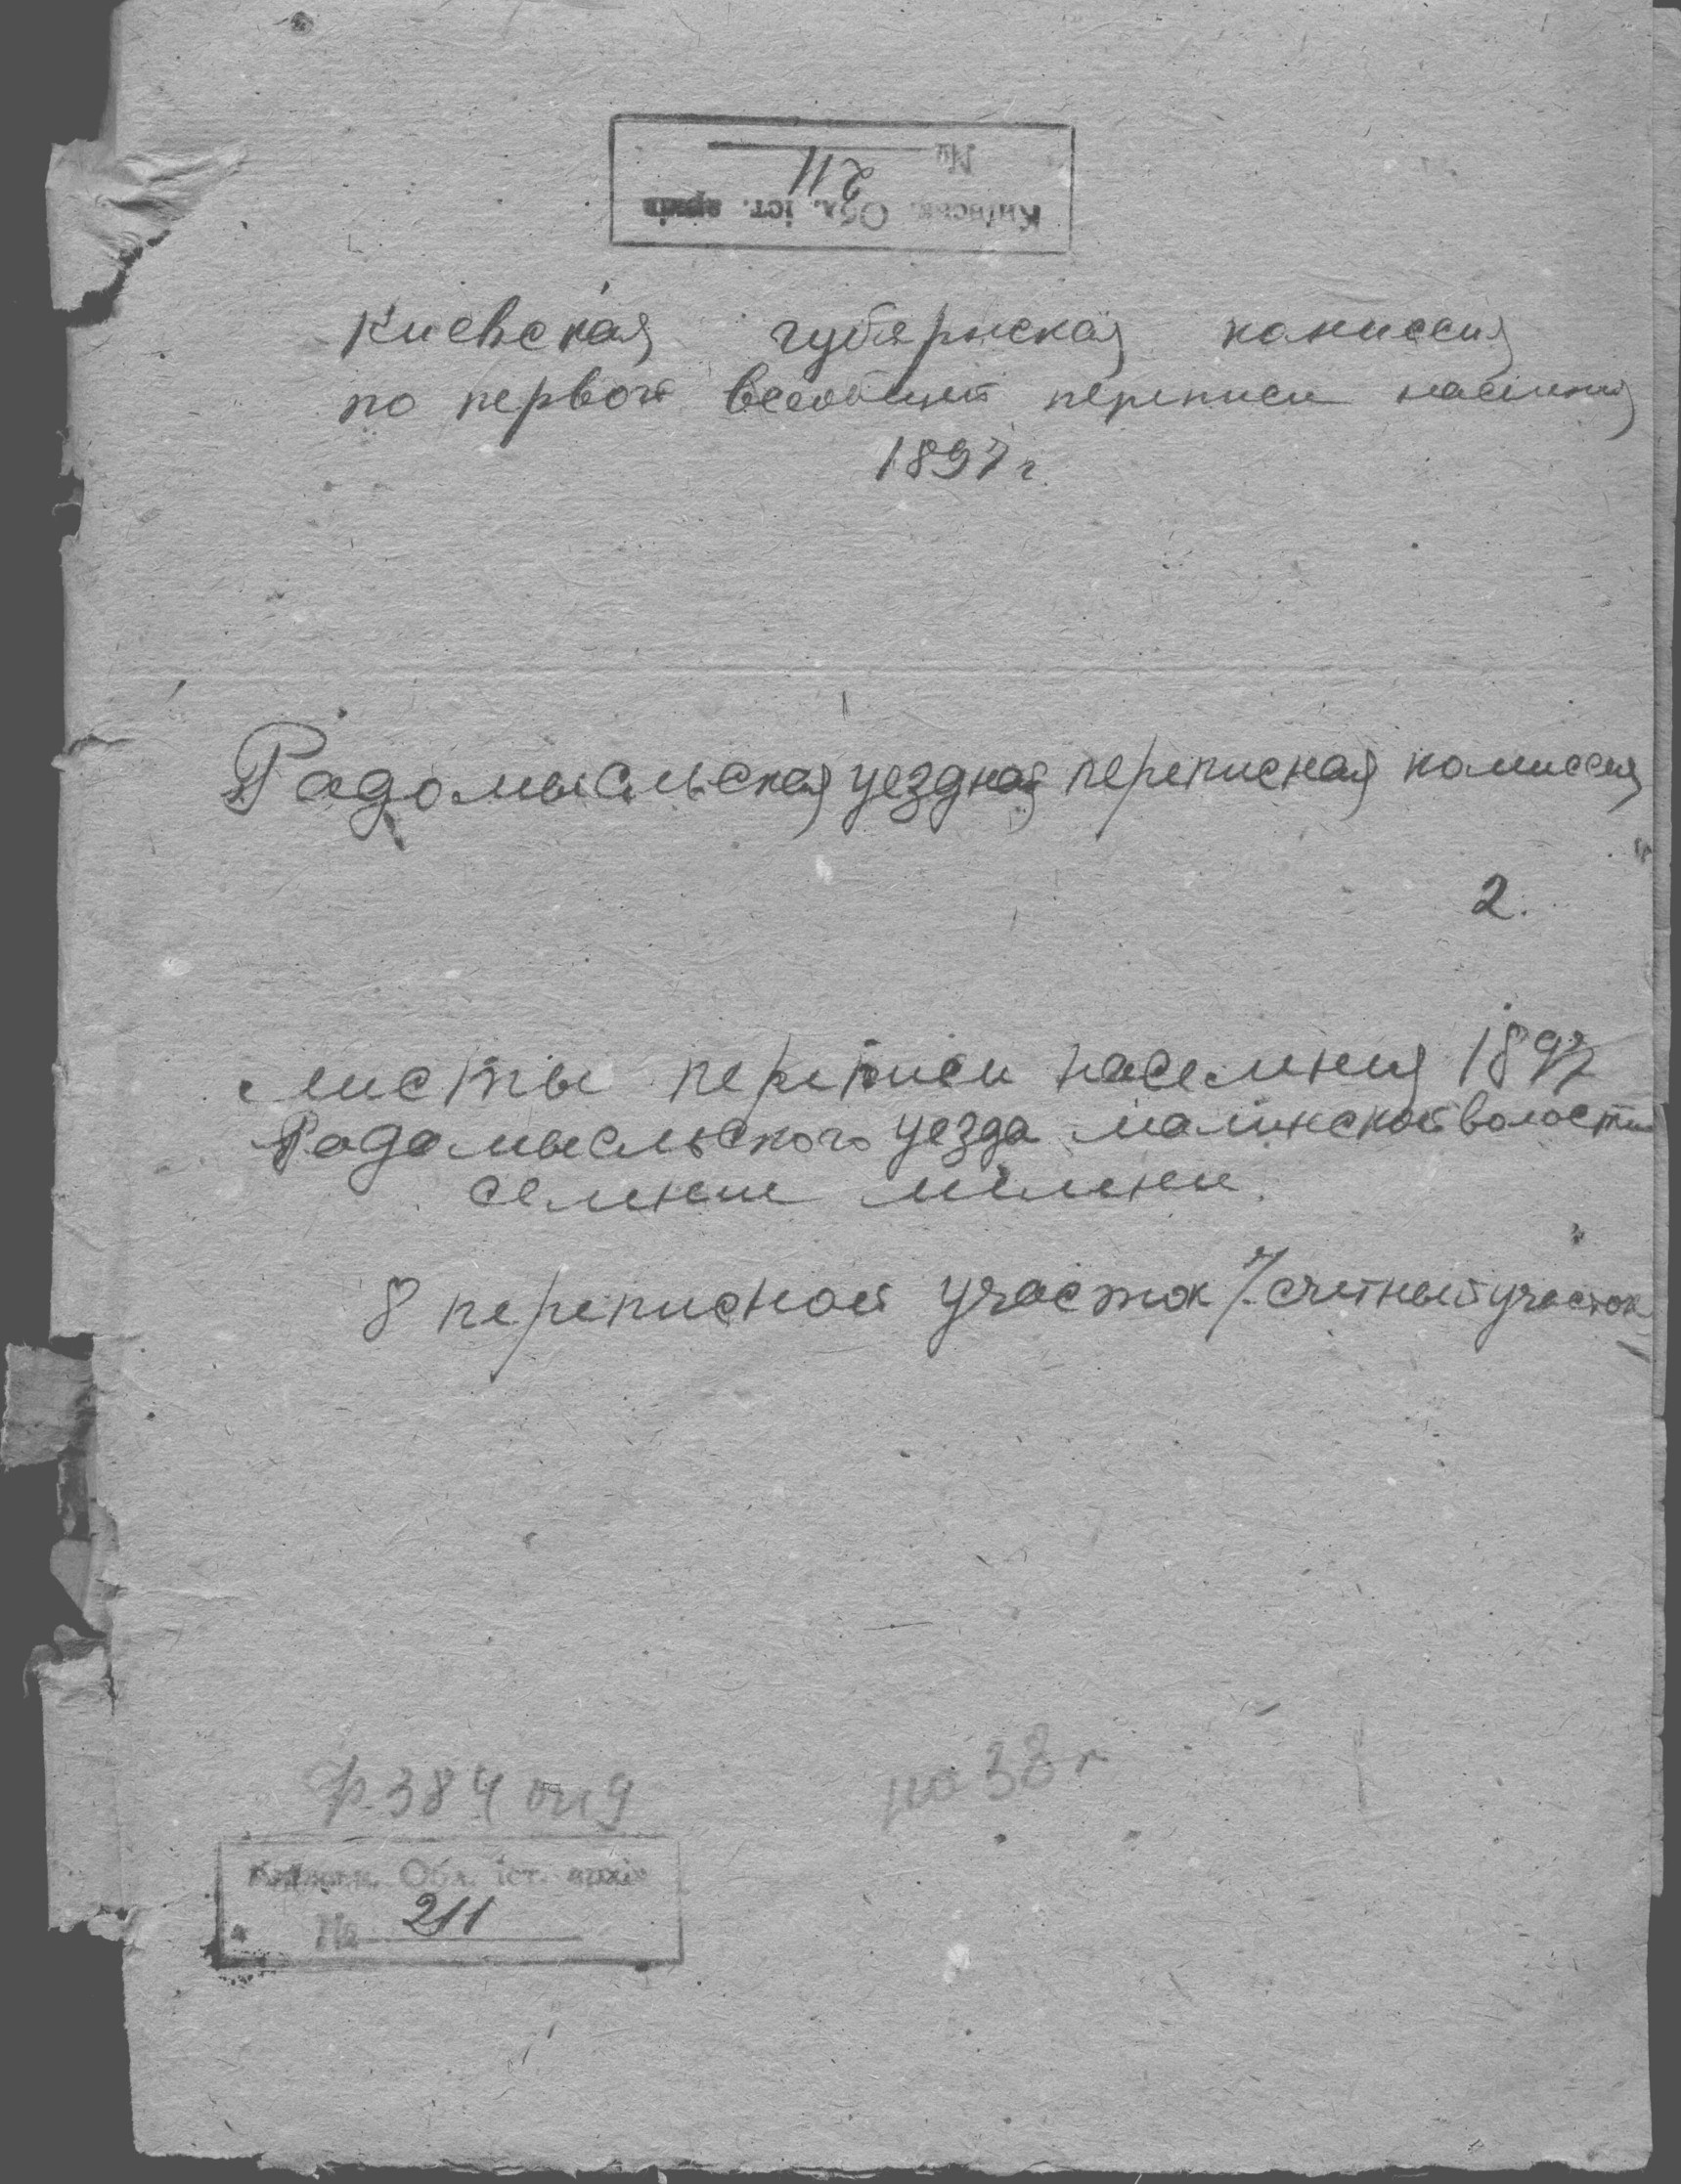 Київськ. Обл. іст. архів
№ 211
Киевская губернская комиссия
по первой всеобщей переписи населения
1897 г.
Радомысльская уездная переписная комиссия
2.
Листы переписи населения 1897
Радомысльского уезда Малинской волости
селение
8 переписной участок 7 счетный участок
ф. 384 оп 9
на 38 л
Київськ. Обл. іст. архів
№ 211